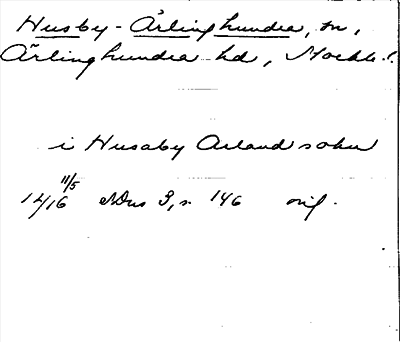 Husby-Ärlinghundra, sn,
Ärlinghundra hd, Stockh. l.
i Husaby Arland sokn
11/5
1416 SDns 3, s. 146 orig.